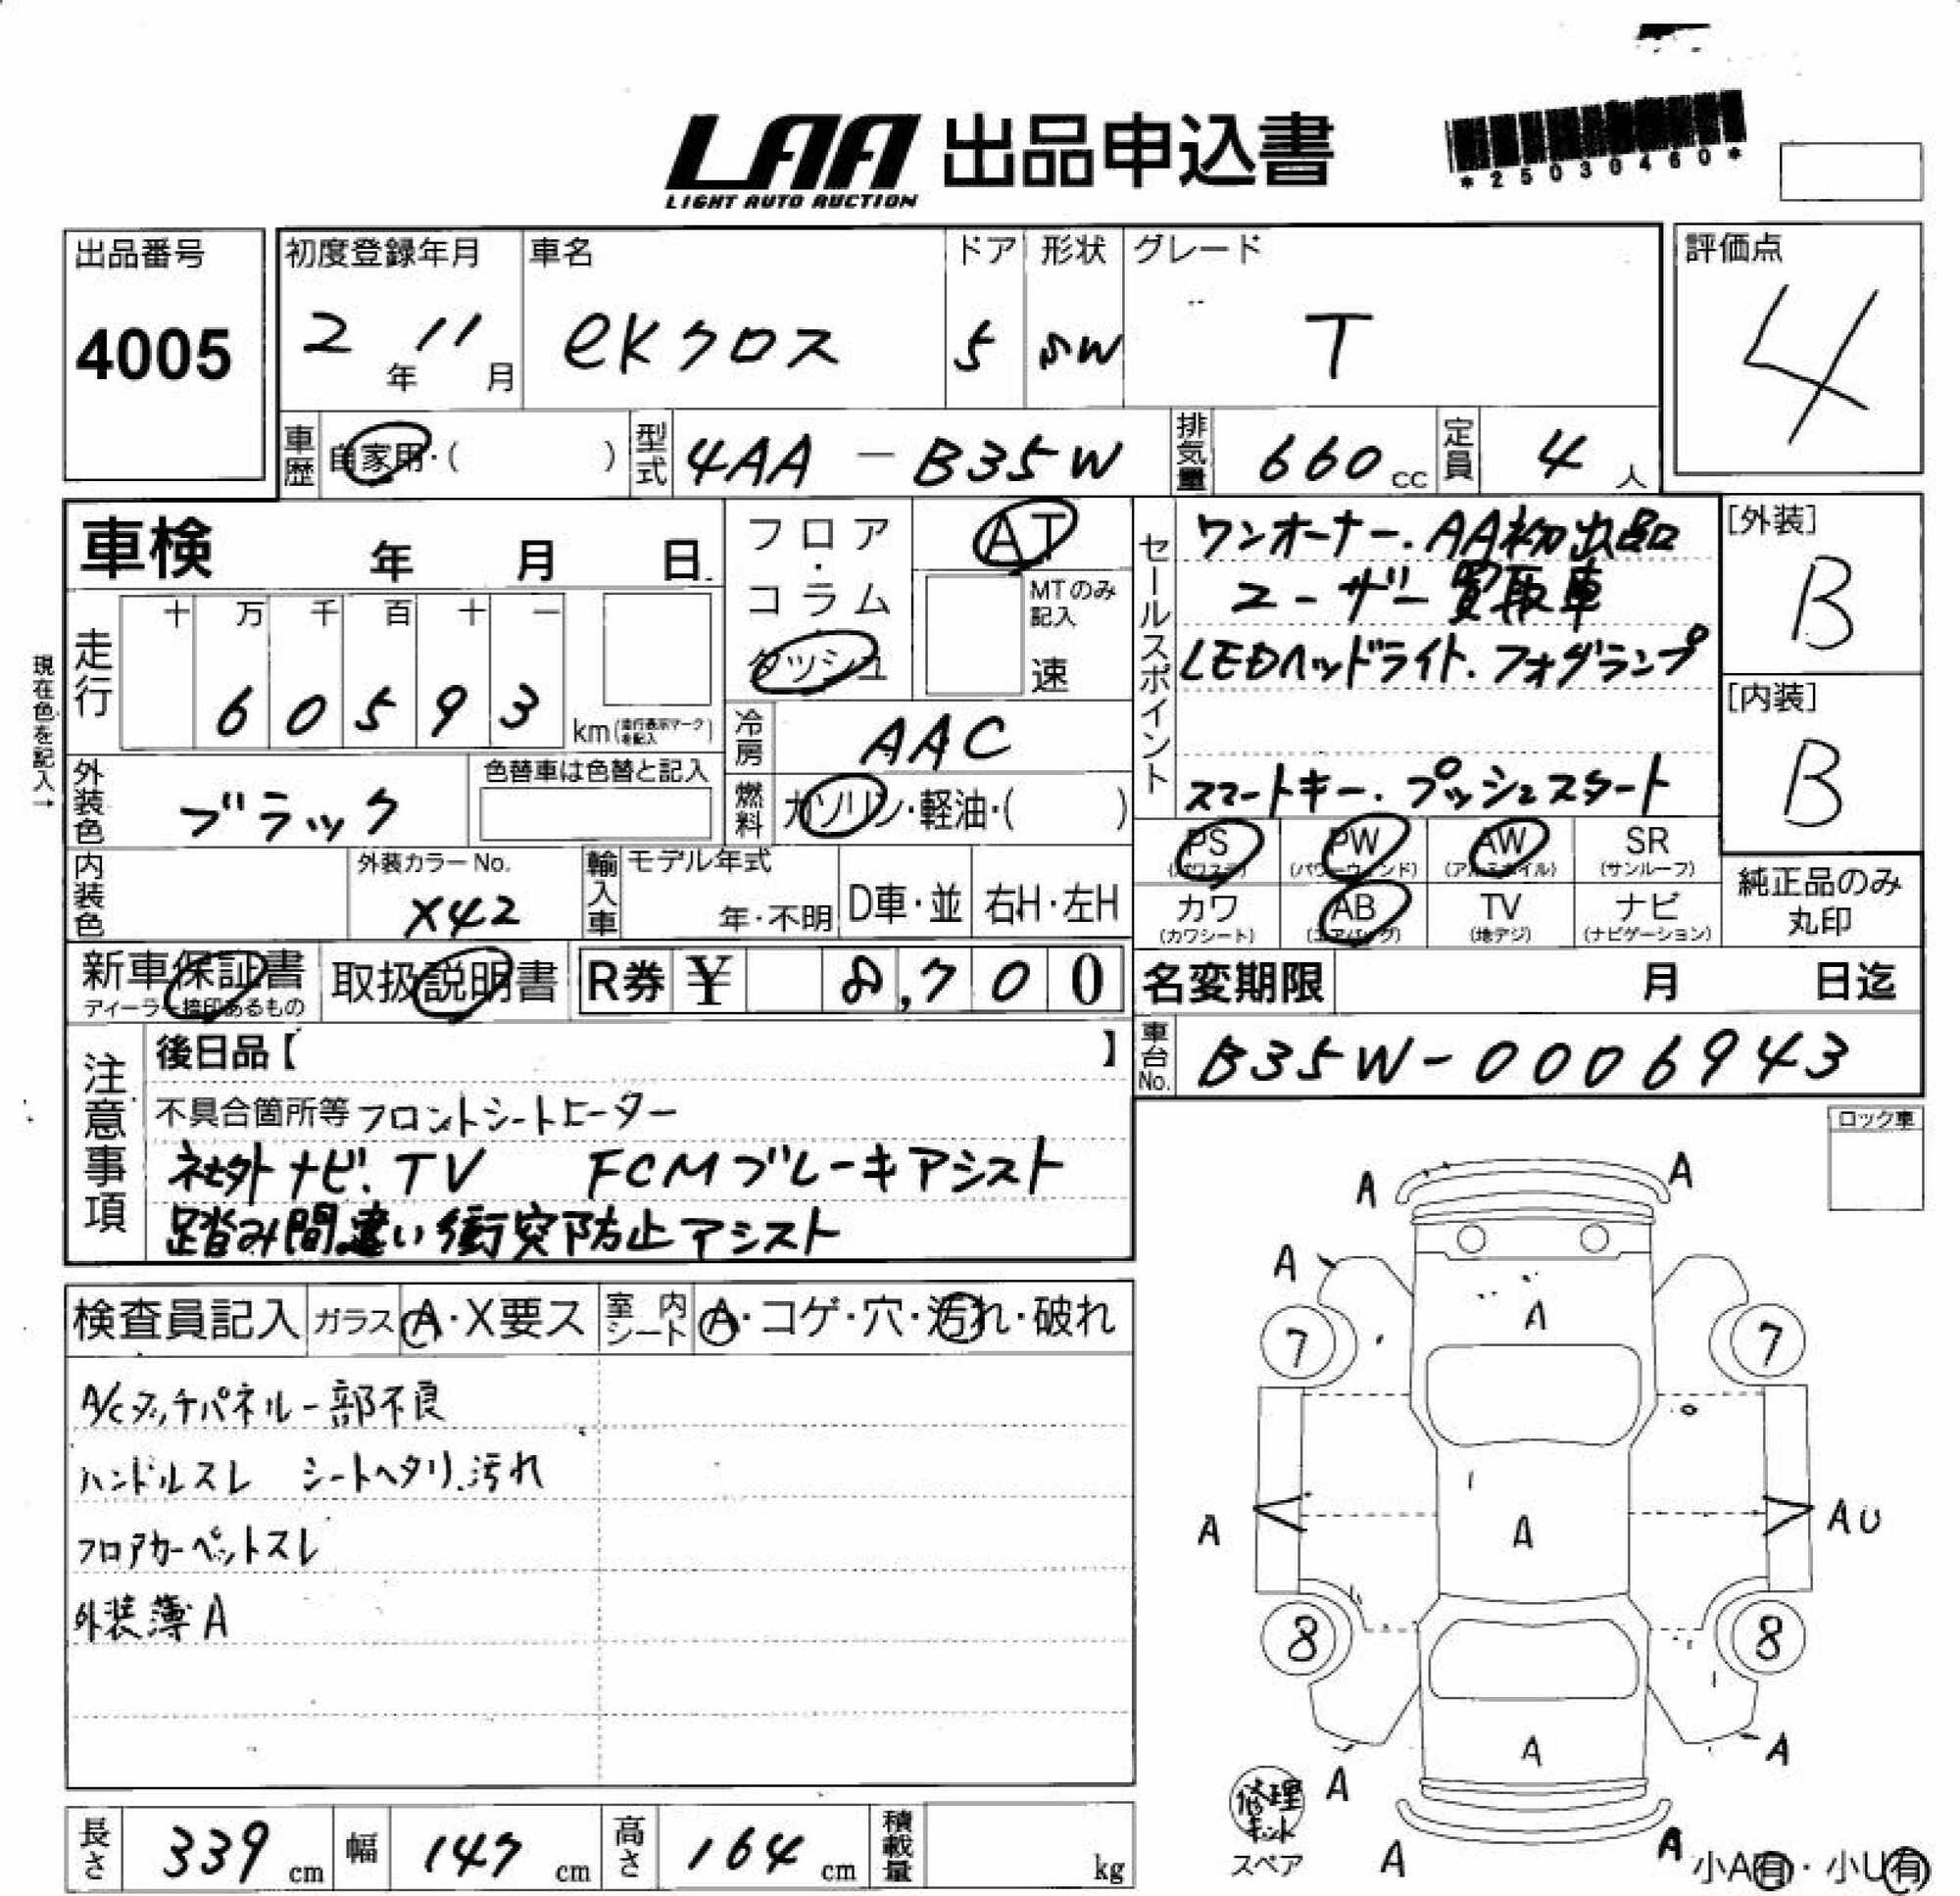 LAA 出品申込書
LIGHT AUTO AUCTION
*25030460*
出品番号
4005
初度登録年月
2年 11月
車名
eKクロス
ドア
5
形状
SW
グレード
T
評価点
4
車歴 自家用・( )
型式 4AA-B35W
排気量 660cc
定員 4人
車検 年 月 日
フロア・コラム
ダッシュ
AT
MTのみ記入
速
現在色を記入→
走行
十 万 千 百 十 一
6 0 5 9 3
km (走行表示マークを記入)
冷房 AAC
外装色 ブラック
色替車は色替と記入
燃料 ガソリン・軽油・( )
内装色
外装カラーNo.
X42
輸入車
モデル年式
年・不明
D車・並
右H・左H
セールスポイント
ワンオーナー.AA初出品
ユーザー買取車
LEDヘッドライト.フォグランプ
スマートキー.プッシュスタート
[外装]
B
[内装]
B
PS (パワステ)
PW (パワーウィンド)
AW (アルミホイル)
SR (サンルーフ)
カワ (カワシート)
AB (エアバッグ)
TV (地デジ)
ナビ (ナビゲーション)
純正品のみ丸印
新車保証書
ディーラー捺印あるもの
取扱説明書
R券 ¥ 8,700
名変期限 月 日迄
車台No. B35W-0006943
注意事項
後日品【 】
不具合箇所等 フロントシートヒーター
社外ナビ.TV FCMブレーキアシスト
踏み間違い衝突防止アシスト
ロック車
検査員記入
ガラス A・X要ス
室内シート A・コゲ・穴・汚れ・破れ
A/Cタッチパネル一部不良
ハンドルスレ シートヘタリ.汚れ
フロアカーペットスレ
外装薄A
A A
A
A
7 7
A A AU
8 8
A
A A
A A
修理キット
スペア
小A有・小U有
長さ 339cm
幅 147cm
高さ 164cm
積載量 kg